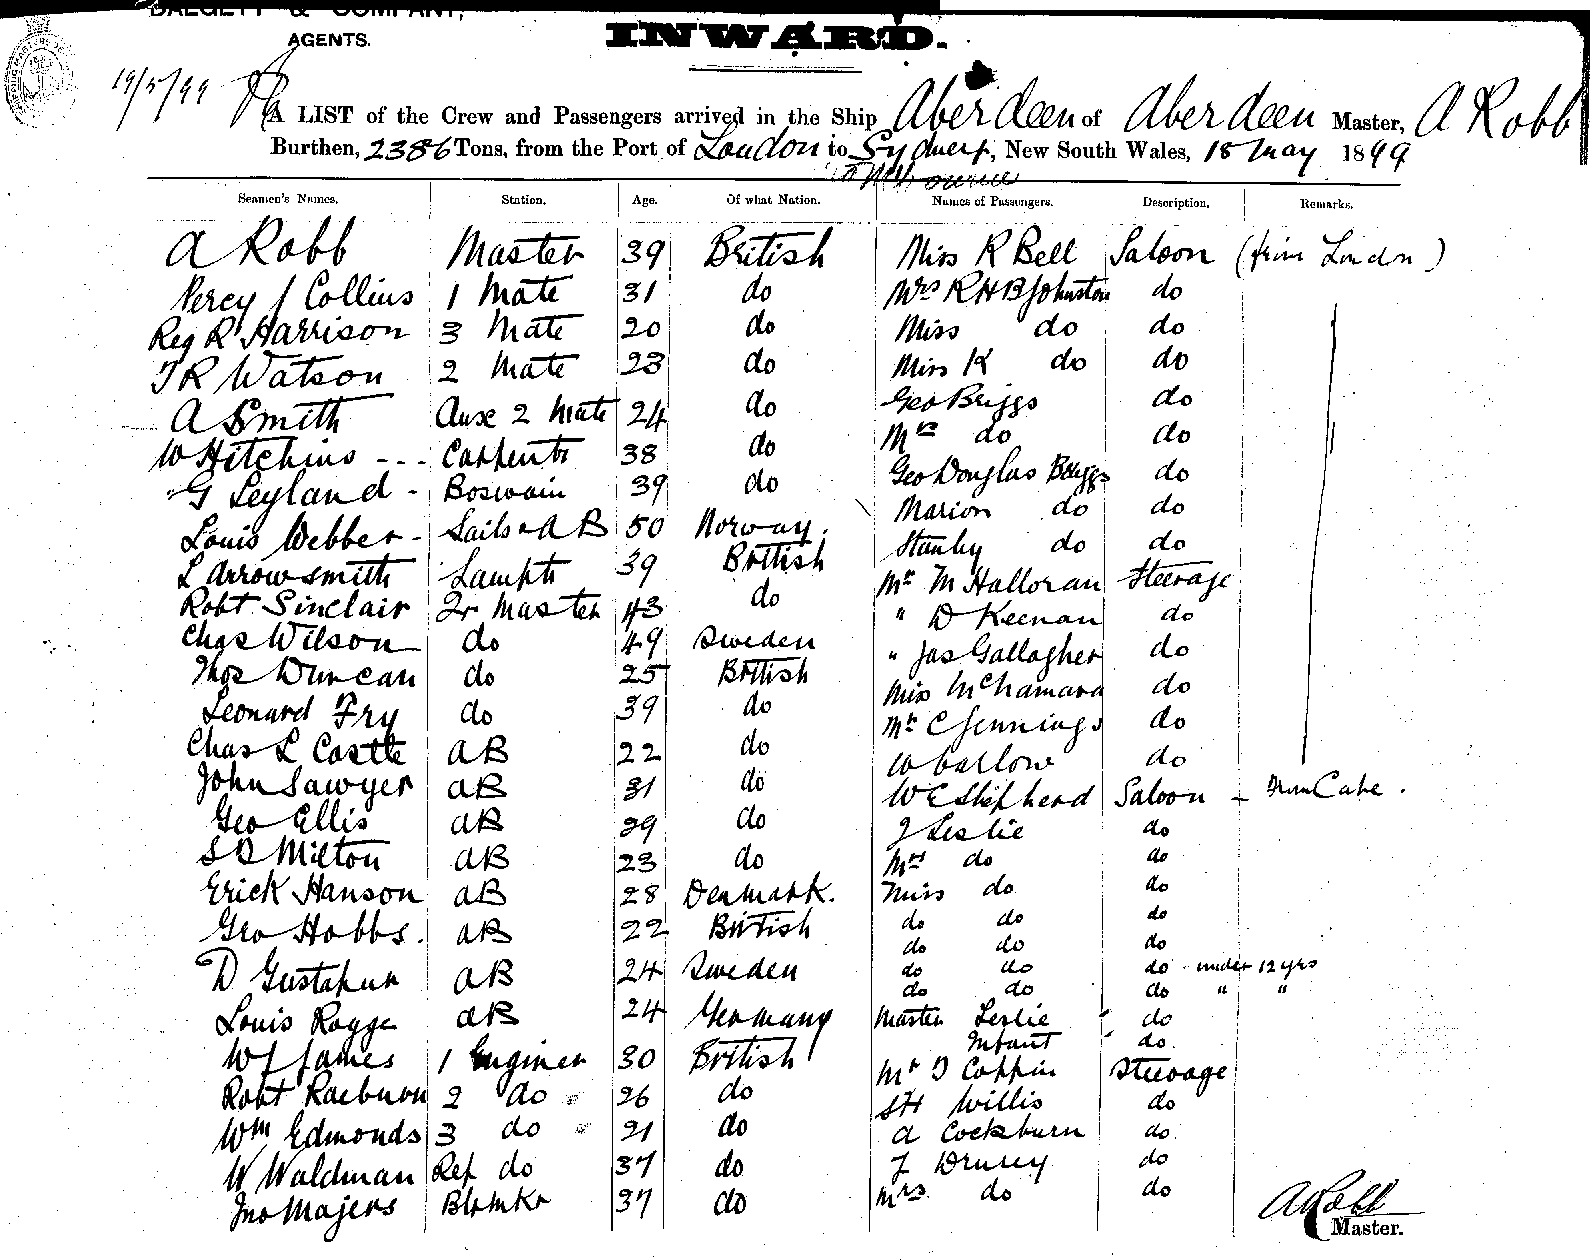 DALGETY & COMPANY,
AGENTS.
INWARD.
19/5/99
A LIST of the Crew and Passengers arrived in the Ship Aberdeen of Aberdeen Master, A Robb
Burthen, 2386 Tons, from the Port of London to Sydney, New South Wales, 18 May 1899
Melbourne
Seamen's Names. Station. Age. Of what Nation. Names of Passengers. Description. Remarks.
A Robb Master 39 British Miss R Bell Saloon (from London)
Percy J Collins 1 Mate 31 do Mrs R H B Johnston do
Reg R Harrison 3 Mate 20 do Miss do do
T R Watson 2 Mate 23 do Miss K do do
A Smith Auxe 2 Mate 24 do Geo Briggs do
W Hitchins --- Carpentr 38 do Mrs do do
G Leyland - Boswain 39 do Geo Douglas Briggs do
Louis Webber - Sails & AB 50 Norway. Marion do do
L Arrowsmith Lamptr 39 British Stanley do do
Robt Sinclair Qr Master 43 do Mr M Halloran Steerage
Chas Wilson do 49 Sweden " D Keenan do
Thos Duncan do 25 British " Jas Gallagher do
Leonard Fry do 39 do Miss McNamara do
Chas L Castle AB 22 do Mr C Jennings do
John Sawyer AB 31 do W Barlow do
Geo Ellis AB 29 do W E Shepherd Saloon - From Cape.
S D Milton AB 23 do J Leslie do
Erick Hanson AB 28 Denmark. Mrs do do
Geo Hobbs. AB 22 British Miss do do
D AB 24 Sweden do do do
Louis Rogge AB 24 Germany do do do
W J James 1 Enginer 30 British do do do under 12 yrs
Robt Raeburn 2 do 26 do do do do " "
Wm Edmonds 3 do 21 do Master Leslie do
W Waldman Ref do 37 do Infant do
Jno Majers 37 do Mr D Coppin Steerage
S H Willis do
A Cockburn do
J Drurey do
Mrs do do
A Robb
Master.